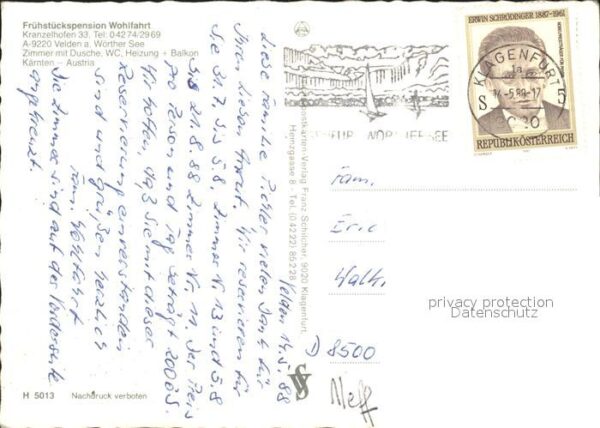 Frühstückspension Wohlfahrt
Kranzelhofen 33. Tel: 04274/2969
A-9220 Velden a. Wörther See
Zimmer mit Dusche, WC, Heizung + Balkon
Kärnten – Austria
Velden 14.5.88
Liebe Familie vielen Dank für
Ihren lieben Wir reservieren für
Sie 31.7 bis 5.8 Zimmer Nr 13 und 5.8
bis 21.8.88 Zimmer Nr. 11 der Preis
pro Person und Tag beträgt 200öS.
Wir hoffen, daß Sie mit dieser
Reservierung einverstanden
sind und grüßen herzlich
Fam. Wohlfahrt
Die Zimmer sind auf der Vorderseite
angekreuzt.
H 5013
Nachdruck verboten
Postkarten-Verlag Franz Schilcher, 9020 Klagenfurt,
Heinzgasse 8 - Tel. (0 42 22) 85 2 28
WÖRTHERSEE
KLAGENFURT
9020
ERWIN SCHRÖDINGER 1887-1961
S 5
REPUBLIK ÖSTERREICH
Fam.
Eric
Walh.
D 8500
privacy protection
Datenschutz